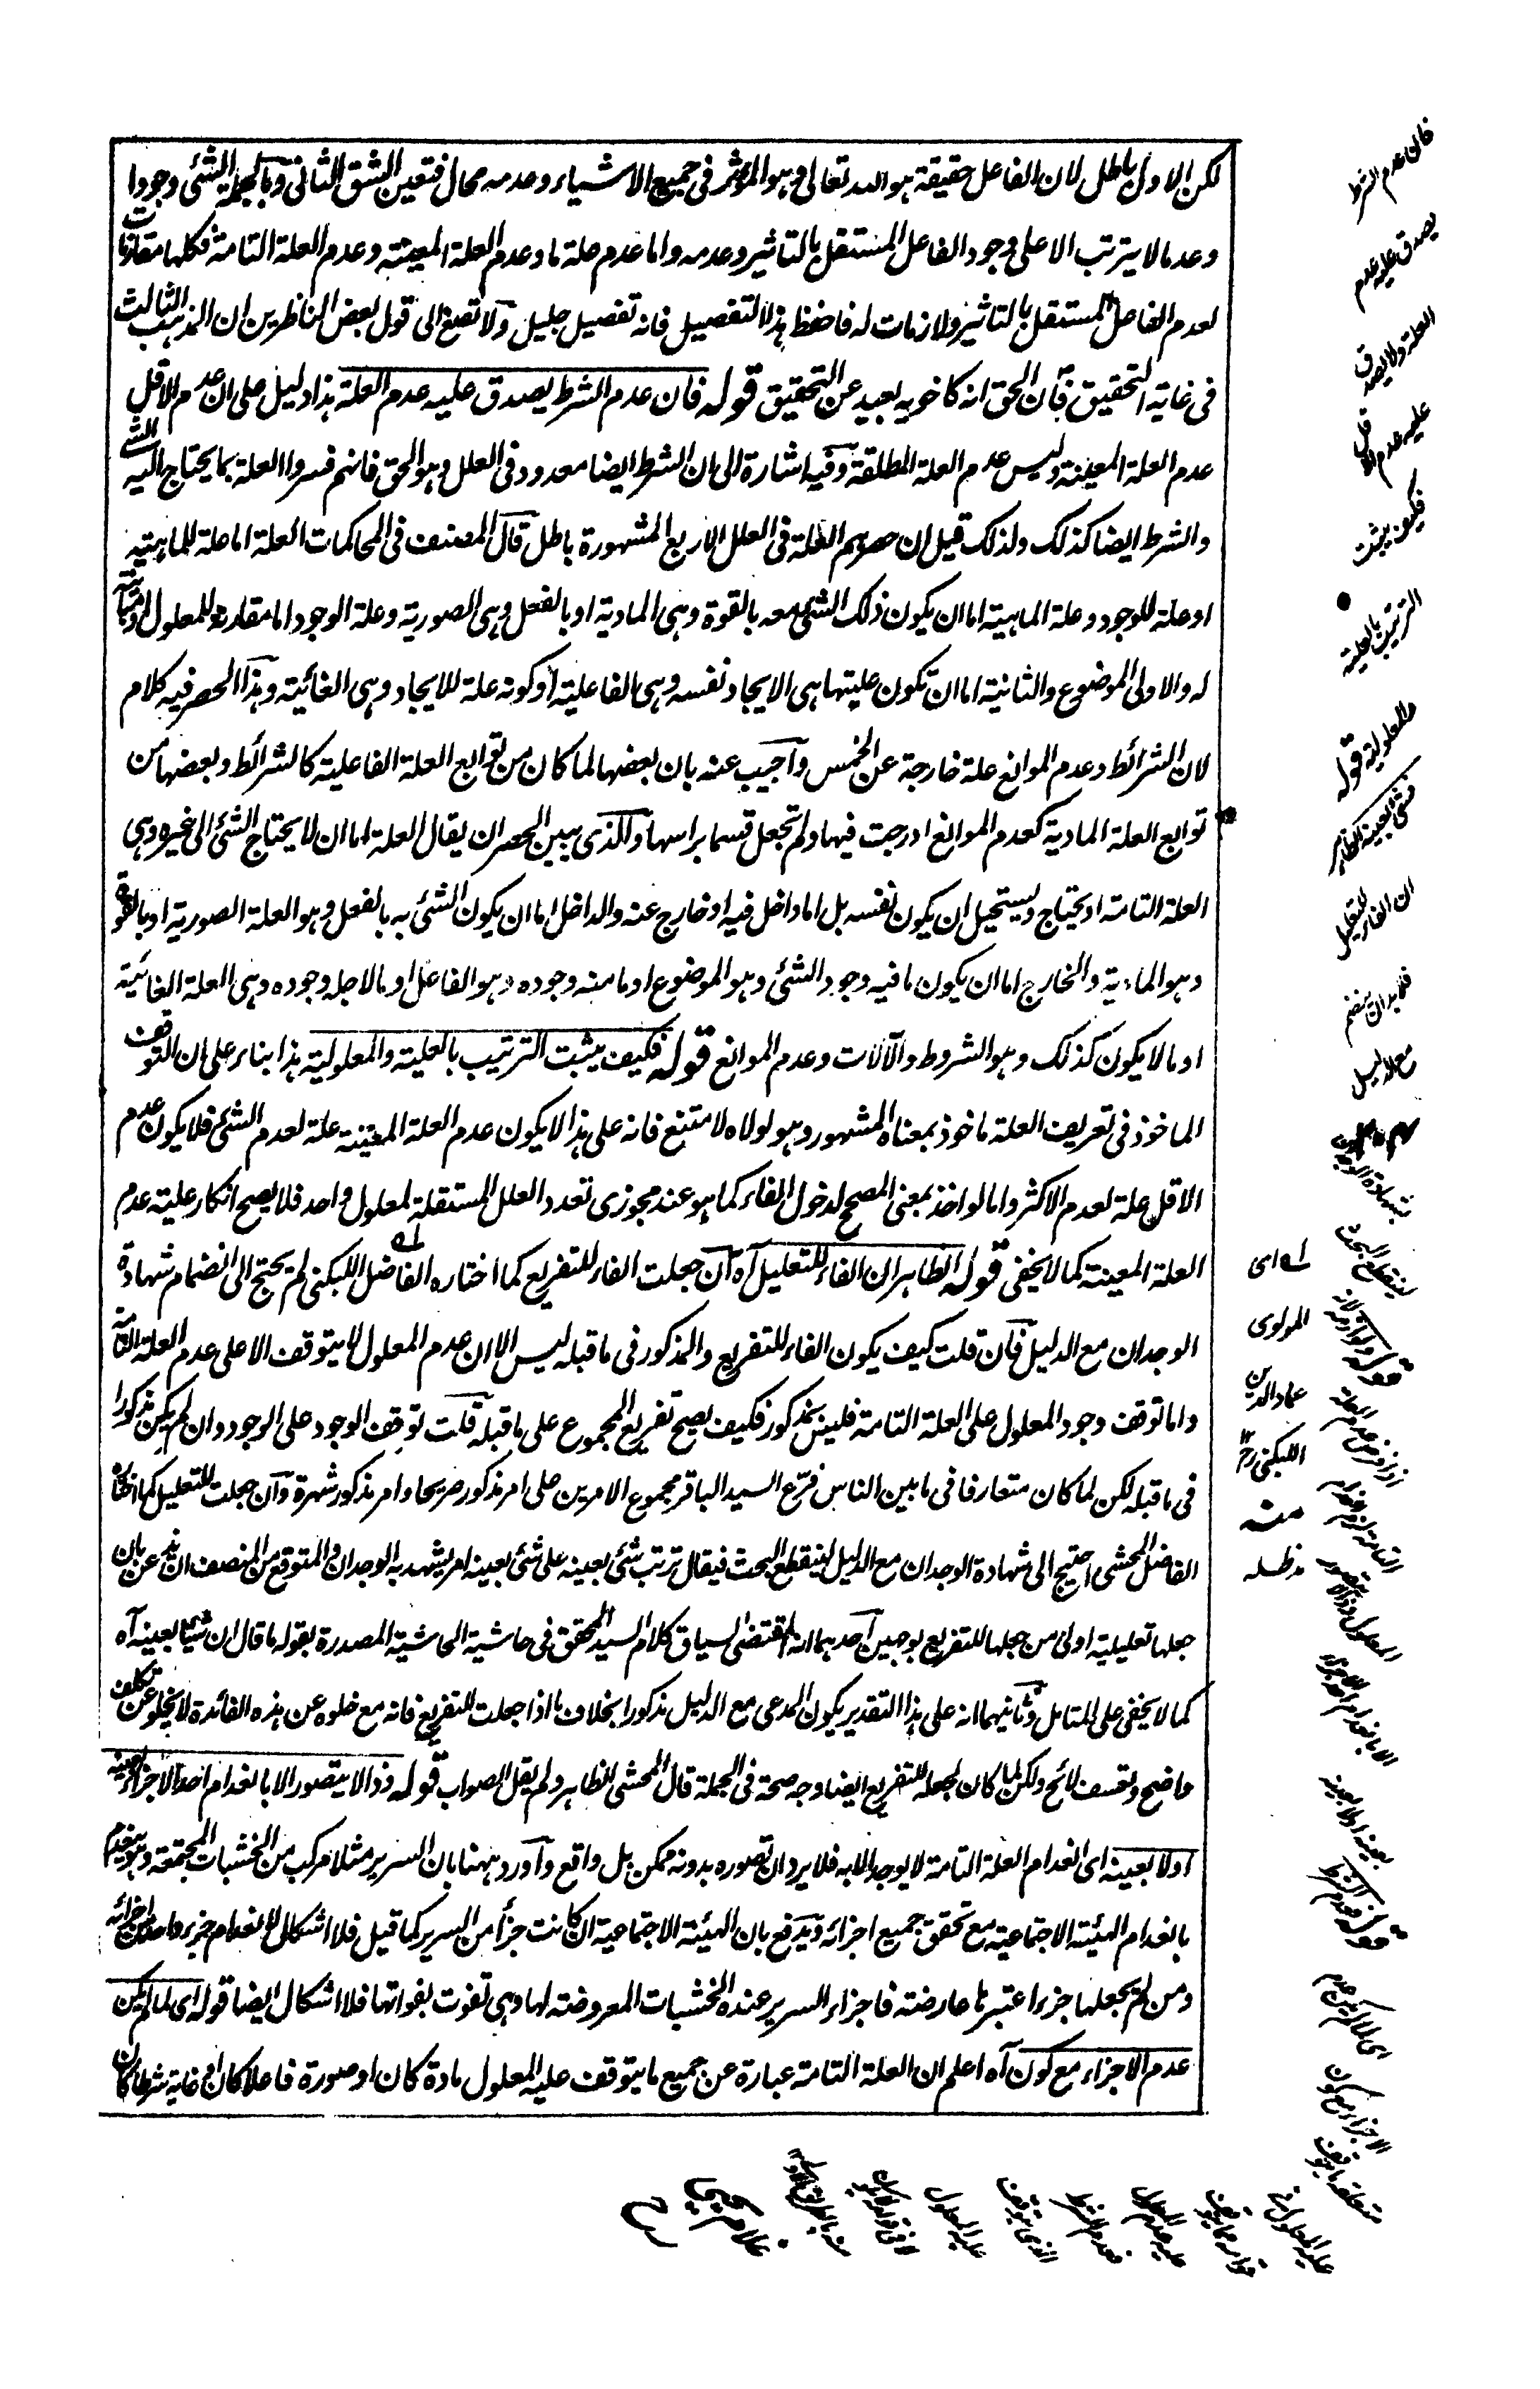 لكن الاول باطل لان الفاعل حقيقة هو الله تعالى وهو المؤثر في جميع الاشياء وعدمه محال فتعين الشق الثاني وبالجملة الشئ وجودا
وعدما لا يترتب الا على وجود الفاعل المستقل بالتاثير وعدمه واما عدم علة ما وعدم العلة المعينة وعدم العلة التامة فكلها مقارنات
لعدم الفاعل المستقل بالتاثير ولازمات له فاحفظ هذا التفصيل فانه تفصيل جليل ولا تصغ الى قول بعض الناظرين ان المذهب الثالث
في غاية التحقيق فان الحق انه كاخويه بعيد عن التحقيق قوله فان عدم الشرط يصدق عليه عدم العلة هذا دليل على ان عدم الاقل
عدم العلة المعينة وليس عدم العلة المطلقة وفيه اشارة الى ان الشرط ايضا معدود في العلل وهو الحق فانهم فسروا العلة بما يحتاج اليه الشئ
والشرط ايضا كذلك ولذلك قيل ان حصرهم العلة في العلل الاربع المشهورة باطل قال المصنف في المحاكمات العلة اما علة للماهية
او علة للوجود وعلة الماهية اما ان يكون ذلك الشئ معه بالقوة وهي المادية او بالفعل وهي الصورية وعلة الوجود اما مقارنة للمعلول او مباينة
له والاولى الموضوع والثانية اما ان تكون عليتها هي الايجاد نفسه وهي الفاعلية او كونه علة للايجاد وهي الغائية وهذا الحصر فيه كلام
لان الشرائط وعدم الموانع علة خارجة عن الخمس واجيب عنه بان بعضها لما كان من توابع العلة الفاعلية كالشرائط وبعضها من
توابع العلة المادية كعدم الموانع ادرجت فيها ولم تجعل قسما براسها والذي يبين الحصر ان يقال العلة اما ان لا يحتاج الشئ الى غيره وهي
العلة التامة او يحتاج ويستحيل ان يكون نفسه بل اما داخل فيه او خارج عنه والداخل اما ان يكون الشئ به بالفعل وهو العلة الصورية او بالقوة
وهو المادية والخارج اما ان يكون ما فيه وجود الشئ وهو الموضوع او ما منه وجوده وهو الفاعل او ما لاجله وجوده وهي العلة الغائية
او ما لا يكون كذلك وهو الشروط والآلات وعدم الموانع قوله فكيف يثبت الترتيب بالعلية والمعلولية هذا بناء على ان التوقف
الماخوذ في تعريف العلة ماخوذ بمعناه المشهور وهو لولاه لامتنع فانه على هذا لا يكون عدم العلة المعينة علة لعدم الشئ فلا يكون عدم
الاقل علة لعدم الاكثر واما لو اخذ بمعنى المصحح لدخول الفاء كما هو عند مجوزي تعدد العلل المستقلة لمعلول واحد فلا يصح انكار علية عدم
العلة المعينة كما لا يخفى قوله الظاهر ان الفاء للتعليل آه ان جعلت الفاء للتفريع كما اختاره الفاضل اللبكني لم يحتج الى انضمام شهادة
الوجدان مع الدليل فان قلت كيف يكون الفاء للتفريع والمذكور في ما قبله ليس الا ان عدم المعلول لا يتوقف الا على عدم العلة التامة
واما توقف وجود المعلول على العلة التامة فليس بمذكور فكيف يصح تفريع المجموع على ما قبله قلت توقف الوجود على الوجود وان لم يكن مذكورا
في ما قبله لكن لما كان متعارفا في ما بين الناس فرّع السيد الباقر مجموع الامرين على امر مذكور صريحا وامر مذكور شهرة وان جعلت للتعليل كما اختاره
الفاضل المحشي احتيج الى شهادة الوجدان مع الدليل لينقطع البحث فيقال ترتب شئ بعينه على شئ بعينه امر يشهد به الوجدان والمتوقع من المنصف ان يذعن بان
جعلها تعليلية اولى من جعلها للتفريع بوجهين احدهما انه المقتضى لسياق كلام السيد المحقق في حاشية الحاشية المصدرة بقوله ما قال ان شيئا بعينه آه
كما لا يخفى على المتامل وثانيهما انه على هذا التقدير يكون المدعى مع الدليل مذكورا بخلاف ما اذا جعلت للتفريع فانه مع خلوه عن هذه الفائدة لا يخلو عن تكلف
واضح وتعسف لائح ولكن لما كان لجعله للتفريع ايضا وجه صحة في الجملة قال المحشي الظاهر ولم يقل الصواب قوله وذا لا يتصور الا بانعدام احد الاجزاء بعينه
اولا بعينه اى انعدام العلة التامة لا يوجد الا به فلا يرد ان تصوره بدونه ممكن بل واقع واورد ههنا بان السرير مثلا مركب من الخشبات المجتمعة وهو ينعدم
بانعدام الهيئة الاجتماعية مع تحقق جميع اجزائه ويدفع بان الهيئة الاجتماعية ان كانت جزأ من السرير كما قيل فلا اشكال لانعدام جزء واحد من اجزائه
ومن لم يجعلها جزءا اعتبرها عارضة فاجزاء السرير عنده الخشبات المعروضة لها وهي تفوت بفواتها فلا اشكال ايضا قوله اى لما لم يكن
عدم الاجزاء مع كون آه اعلم ان العلة التامة عبارة عن جميع ما يتوقف عليه المعلول مادة كان او صورة فاعلا كان او غاية شرطا كان
فان عدم الشرط
يصدق عليه عدم
العلة ولا يصدق
عليه عدم الاقل
فكيف يثبت
الترتيب بالعلية
والمعلولية قوله
شئ بعينه الظاهر
ان الفاء للتعليل
فلا بد ان ينضم
مع الدليل
شهادة الوجدان
لينقطع البحث
له اى
المولوى
عماد الدين
اللبكني رح
منه
مدظله